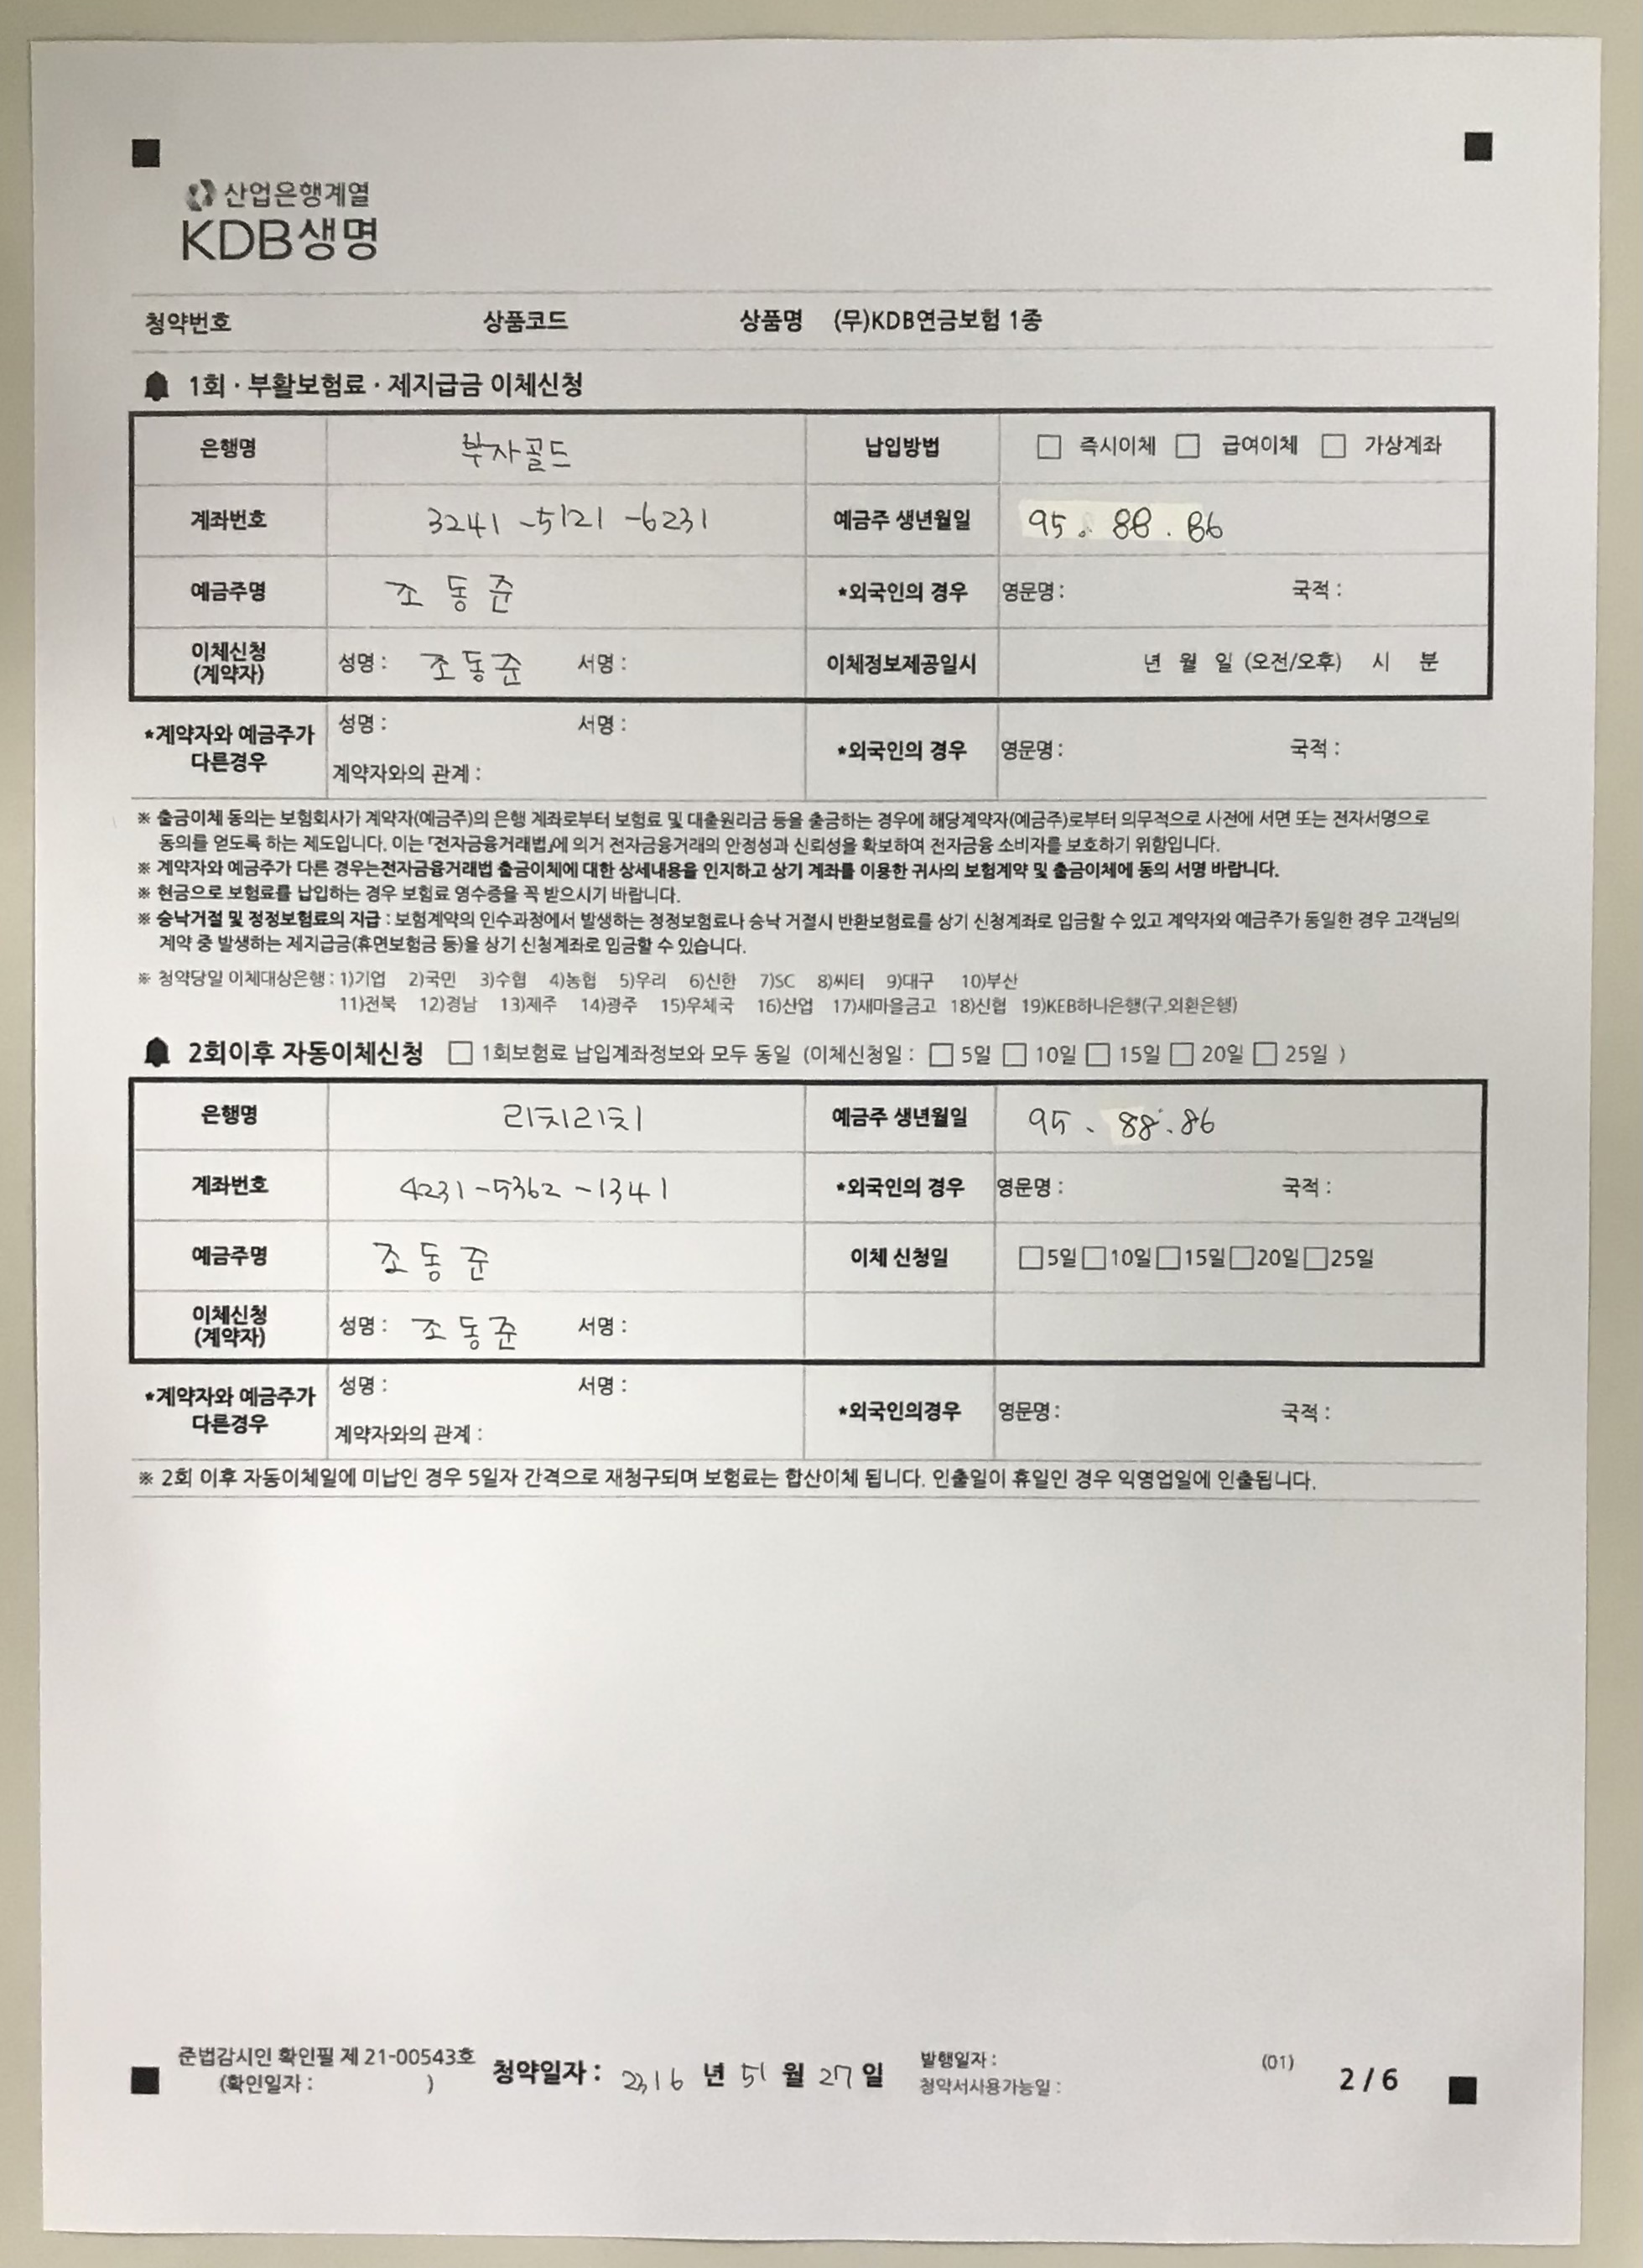 산업은행계열
KDB생명
청약번호 상품코드 상품명 (무)KDB연금보험 1종
1회 · 부활보험료 · 제지급금 이체신청
은행명 부자골드 납입방법 □ 즉시이체 □ 급여이체 □ 가상계좌
계좌번호 3241-5121-6231 예금주 생년월일 95. 88. 86
예금주명 조동준 *외국인의 경우 영문명 : 국적 :
이체신청 (계약자) 성명 : 조동준 서명 : 이체정보제공일시 년 월 일 (오전/오후) 시 분
*계약자와 예금주가 다른경우 성명 : 서명 : *외국인의 경우 영문명 : 국적 :
계약자와의 관계 :
※ 출금이체 동의는 보험회사가 계약자(예금주)의 은행 계좌로부터 보험료 및 대출원리금 등을 출금하는 경우에 해당계약자(예금주)로부터 의무적으로 사전에 서면 또는 전자서명으로
동의를 얻도록 하는 제도입니다. 이는 「전자금융거래법」에 의거 전자금융거래의 안정성과 신뢰성을 확보하여 전자금융 소비자를 보호하기 위함입니다.
※ 계약자와 예금주가 다른 경우는전자금융거래법 출금이체에 대한 상세내용을 인지하고 상기 계좌를 이용한 귀사의 보험계약 및 출금이체에 동의 서명 바랍니다.
※ 현금으로 보험료를 납입하는 경우 보험료 영수증을 꼭 받으시기 바랍니다.
※ 승낙거절 및 정정보험료의 지급 : 보험계약의 인수과정에서 발생하는 정정보험료나 승낙 거절시 반환보험료를 상기 신청계좌로 입금할 수 있고 계약자와 예금주가 동일한 경우 고객님의
계약 중 발생하는 제지급금(휴면보험금 등)을 상기 신청계좌로 입금할 수 있습니다.
※ 청약당일 이체대상은행 : 1)기업 2)국민 3)수협 4)농협 5)우리 6)신한 7)SC 8)씨티 9)대구 10)부산
11)전북 12)경남 13)제주 14)광주 15)우체국 16)산업 17)새마을금고 18)신협 19)KEB하나은행(구.외환은행)
2회이후 자동이체신청 □ 1회보험료 납입계좌정보와 모두 동일 (이체신청일 : □ 5일 □ 10일 □ 15일 □ 20일 □ 25일 )
은행명 리치리치 예금주 생년월일 95. 88. 86
계좌번호 4231-5362-1341 *외국인의 경우 영문명 : 국적 :
예금주명 조동준 이체 신청일 □5일□10일□15일□20일□25일
이체신청 (계약자) 성명 : 조동준 서명 :
*계약자와 예금주가 다른경우 성명 : 서명 : *외국인의경우 영문명 : 국적 :
계약자와의 관계 :
※ 2회 이후 자동이체일에 미납인 경우 5일자 간격으로 재청구되며 보험료는 합산이체 됩니다. 인출일이 휴일인 경우 익영업일에 인출됩니다.
준법감시인 확인필 제 21-00543호 청약일자 : 2316 년 51 월 27 일 발행일자 : (01) 2 / 6
(확인일자 : ) 청약서사용가능일 :